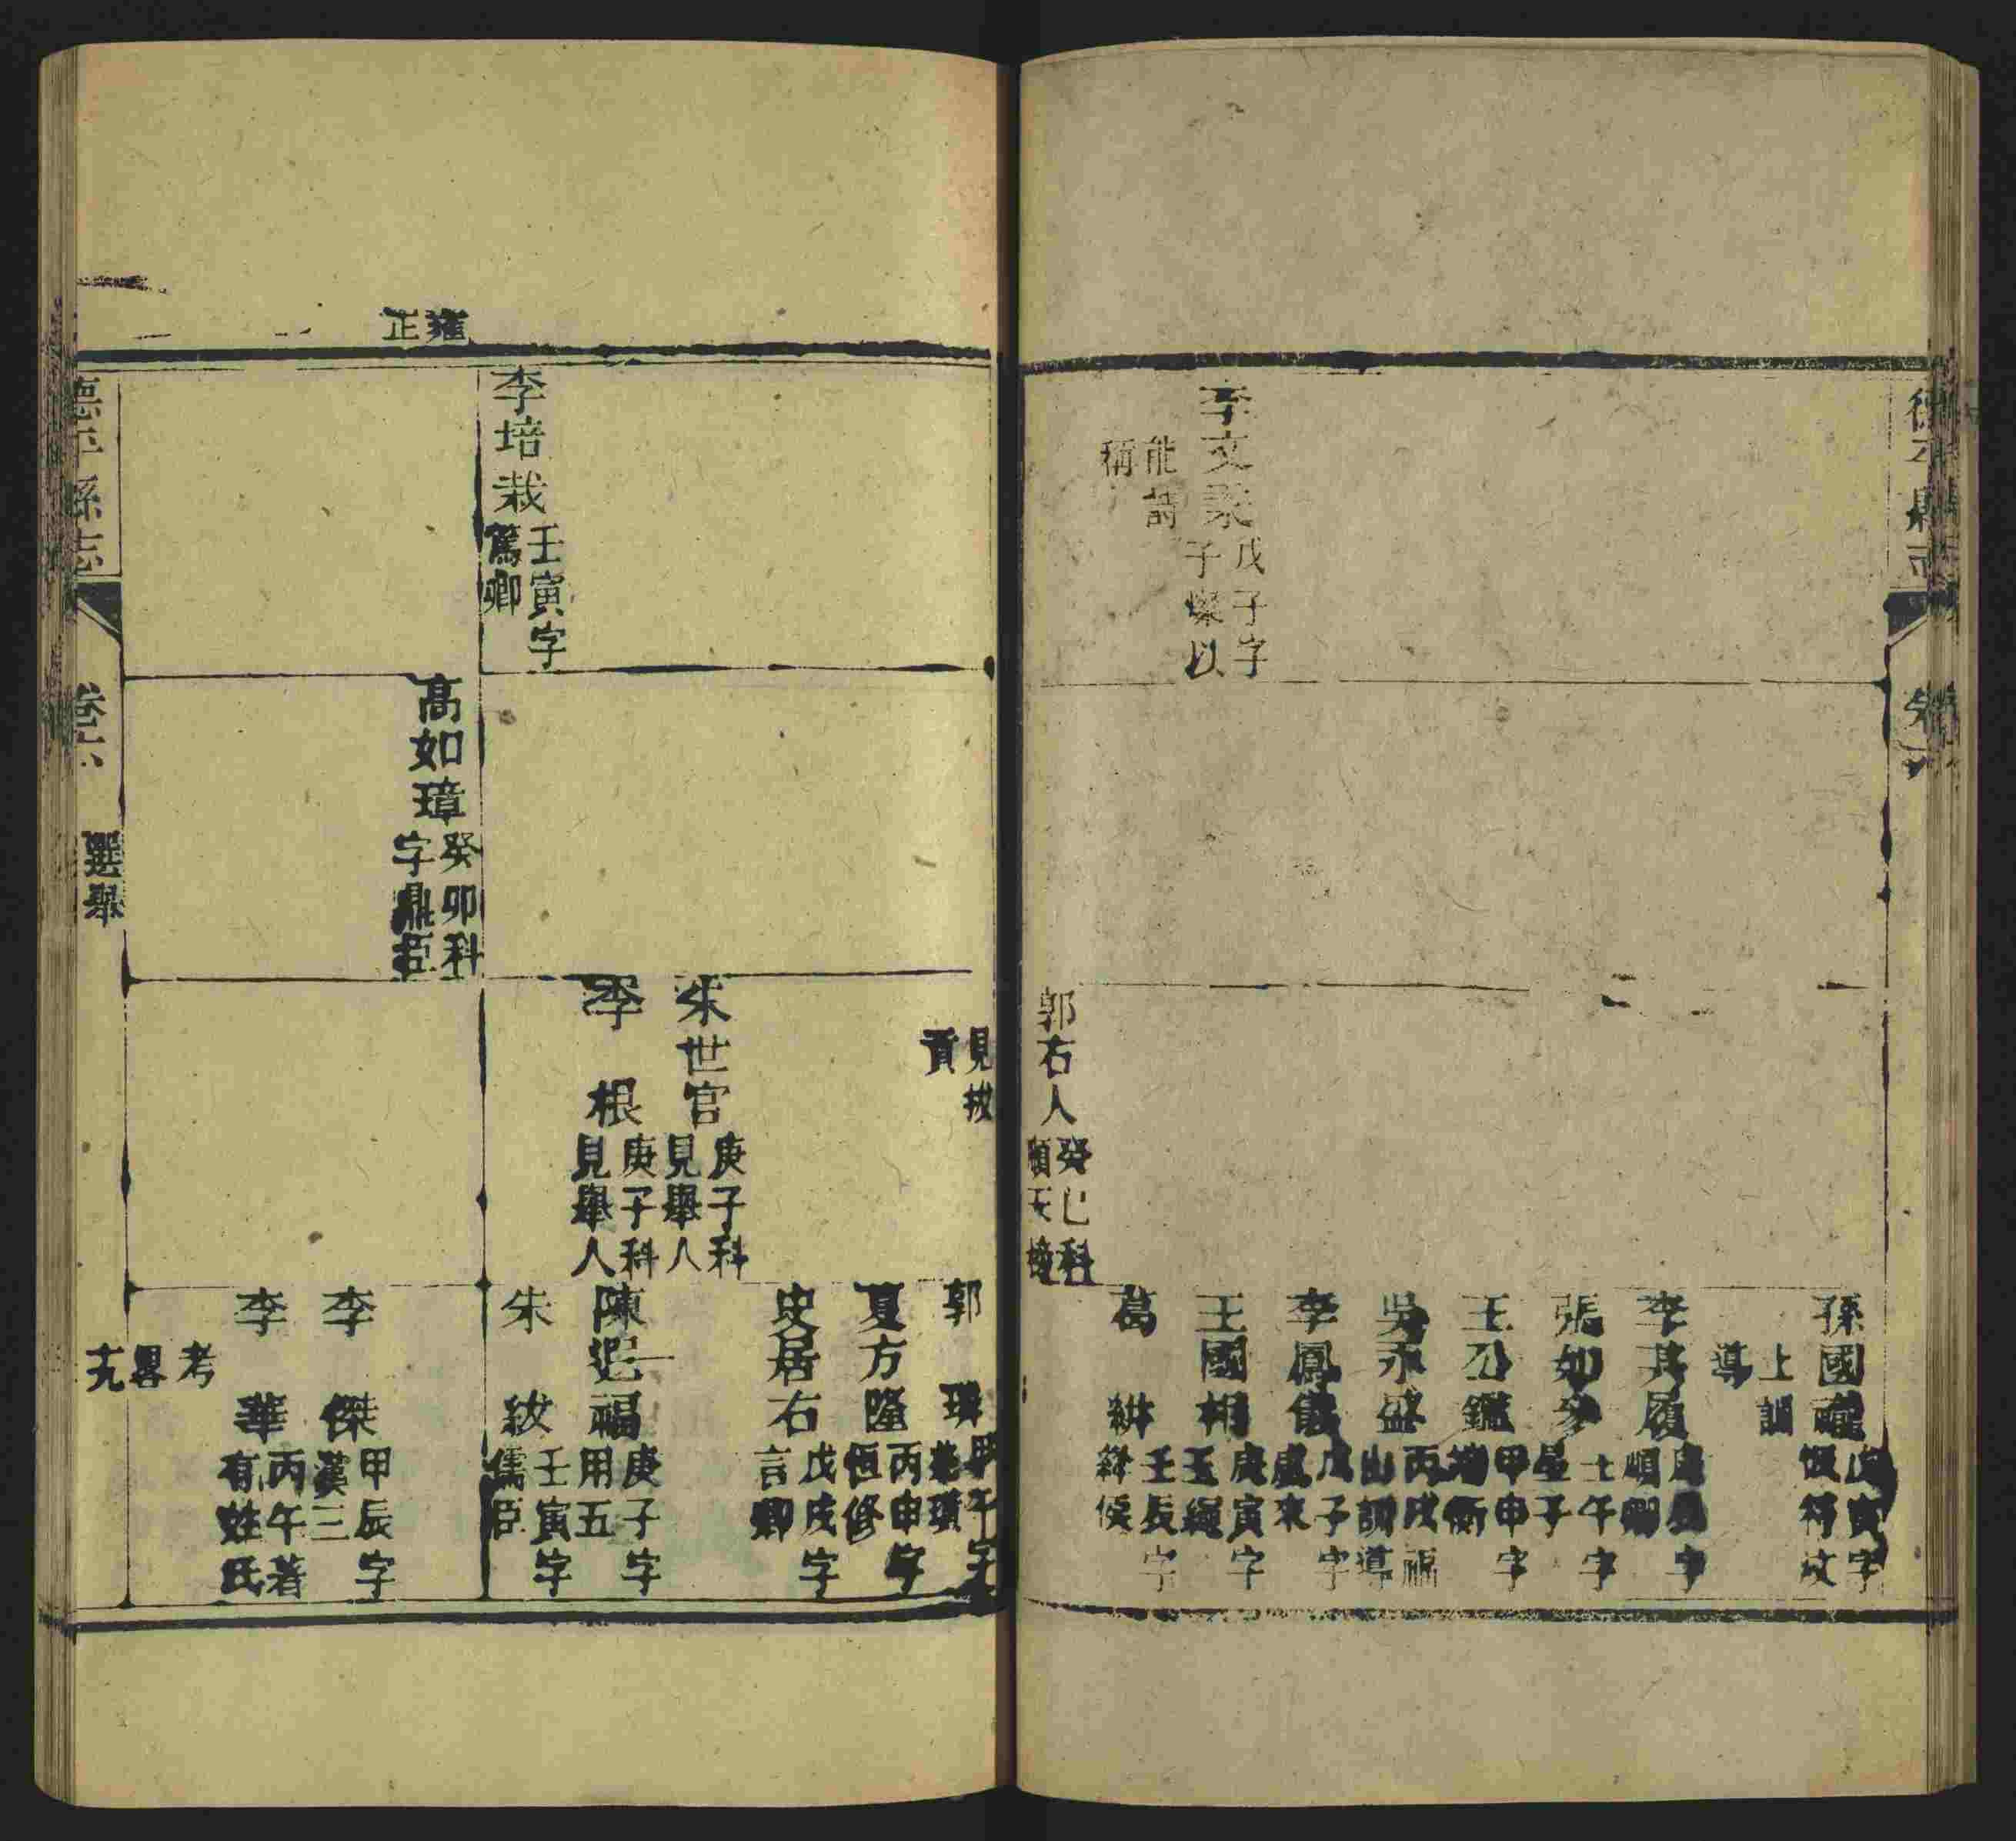 德平縣志
卷六
李文
戊子字
子燦以
能詩
稱
郭右人
癸巳科
順天
孫國
戊寅字
上訓
導
李其履
庚辰字
順卿
張如
壬午字
星子
王公鑑
甲申字
吳永盛
丙戌福
山訓導
李鳳儀
戊子字
虞來
王國相
庚寅字
玉繩
葛
壬辰字
絳侯
見拔
貢
郭
甲午字
夏方隆
丙申字
恒修
史居右
戊戌字
言卿
朱世官
庚子科
見舉人
李根
庚子科
見舉人
陳遐福
庚子字
用五
朱紱
壬寅字
儒臣
李培栽
壬寅字
篤卿
雍正
高如璋
癸卯科
字鼎臣
李傑
甲辰字
漢三
李華
丙午著
有姓氏
考
畧
德平縣志
卷六
選舉